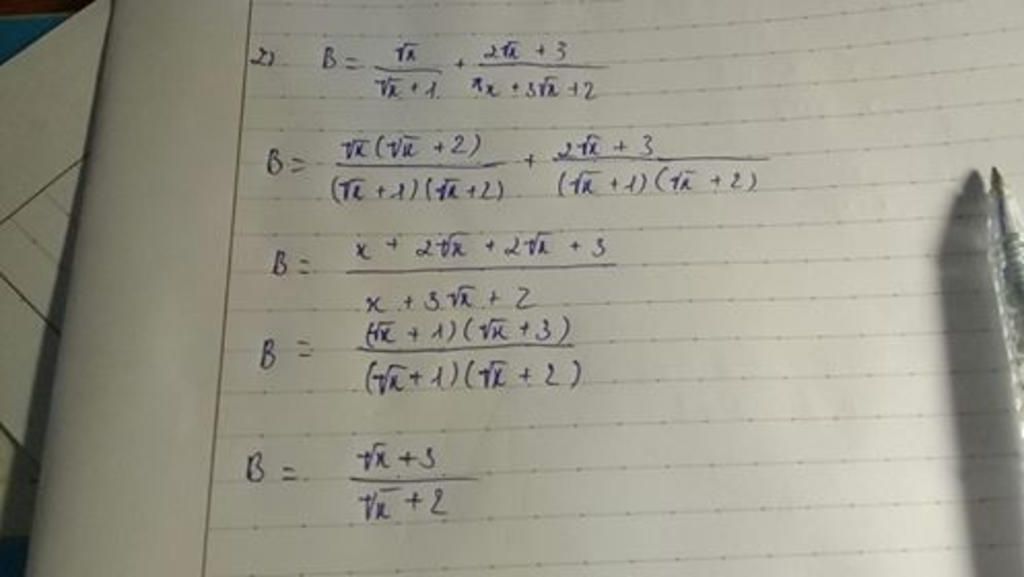 2) B = √x/(√x + 1) + (2√x + 3)/(x + 3√x + 2)
B = √x(√x + 2)/((√x + 1)(√x + 2)) + (2√x + 3)/((√x + 1)(√x + 2))
B = (x + 2√x + 2√x + 3)/(x + 3√x + 2)
B = ((√x + 1)(√x + 3))/((√x + 1)(√x + 2))
B = (√x + 3)/(√x + 2)